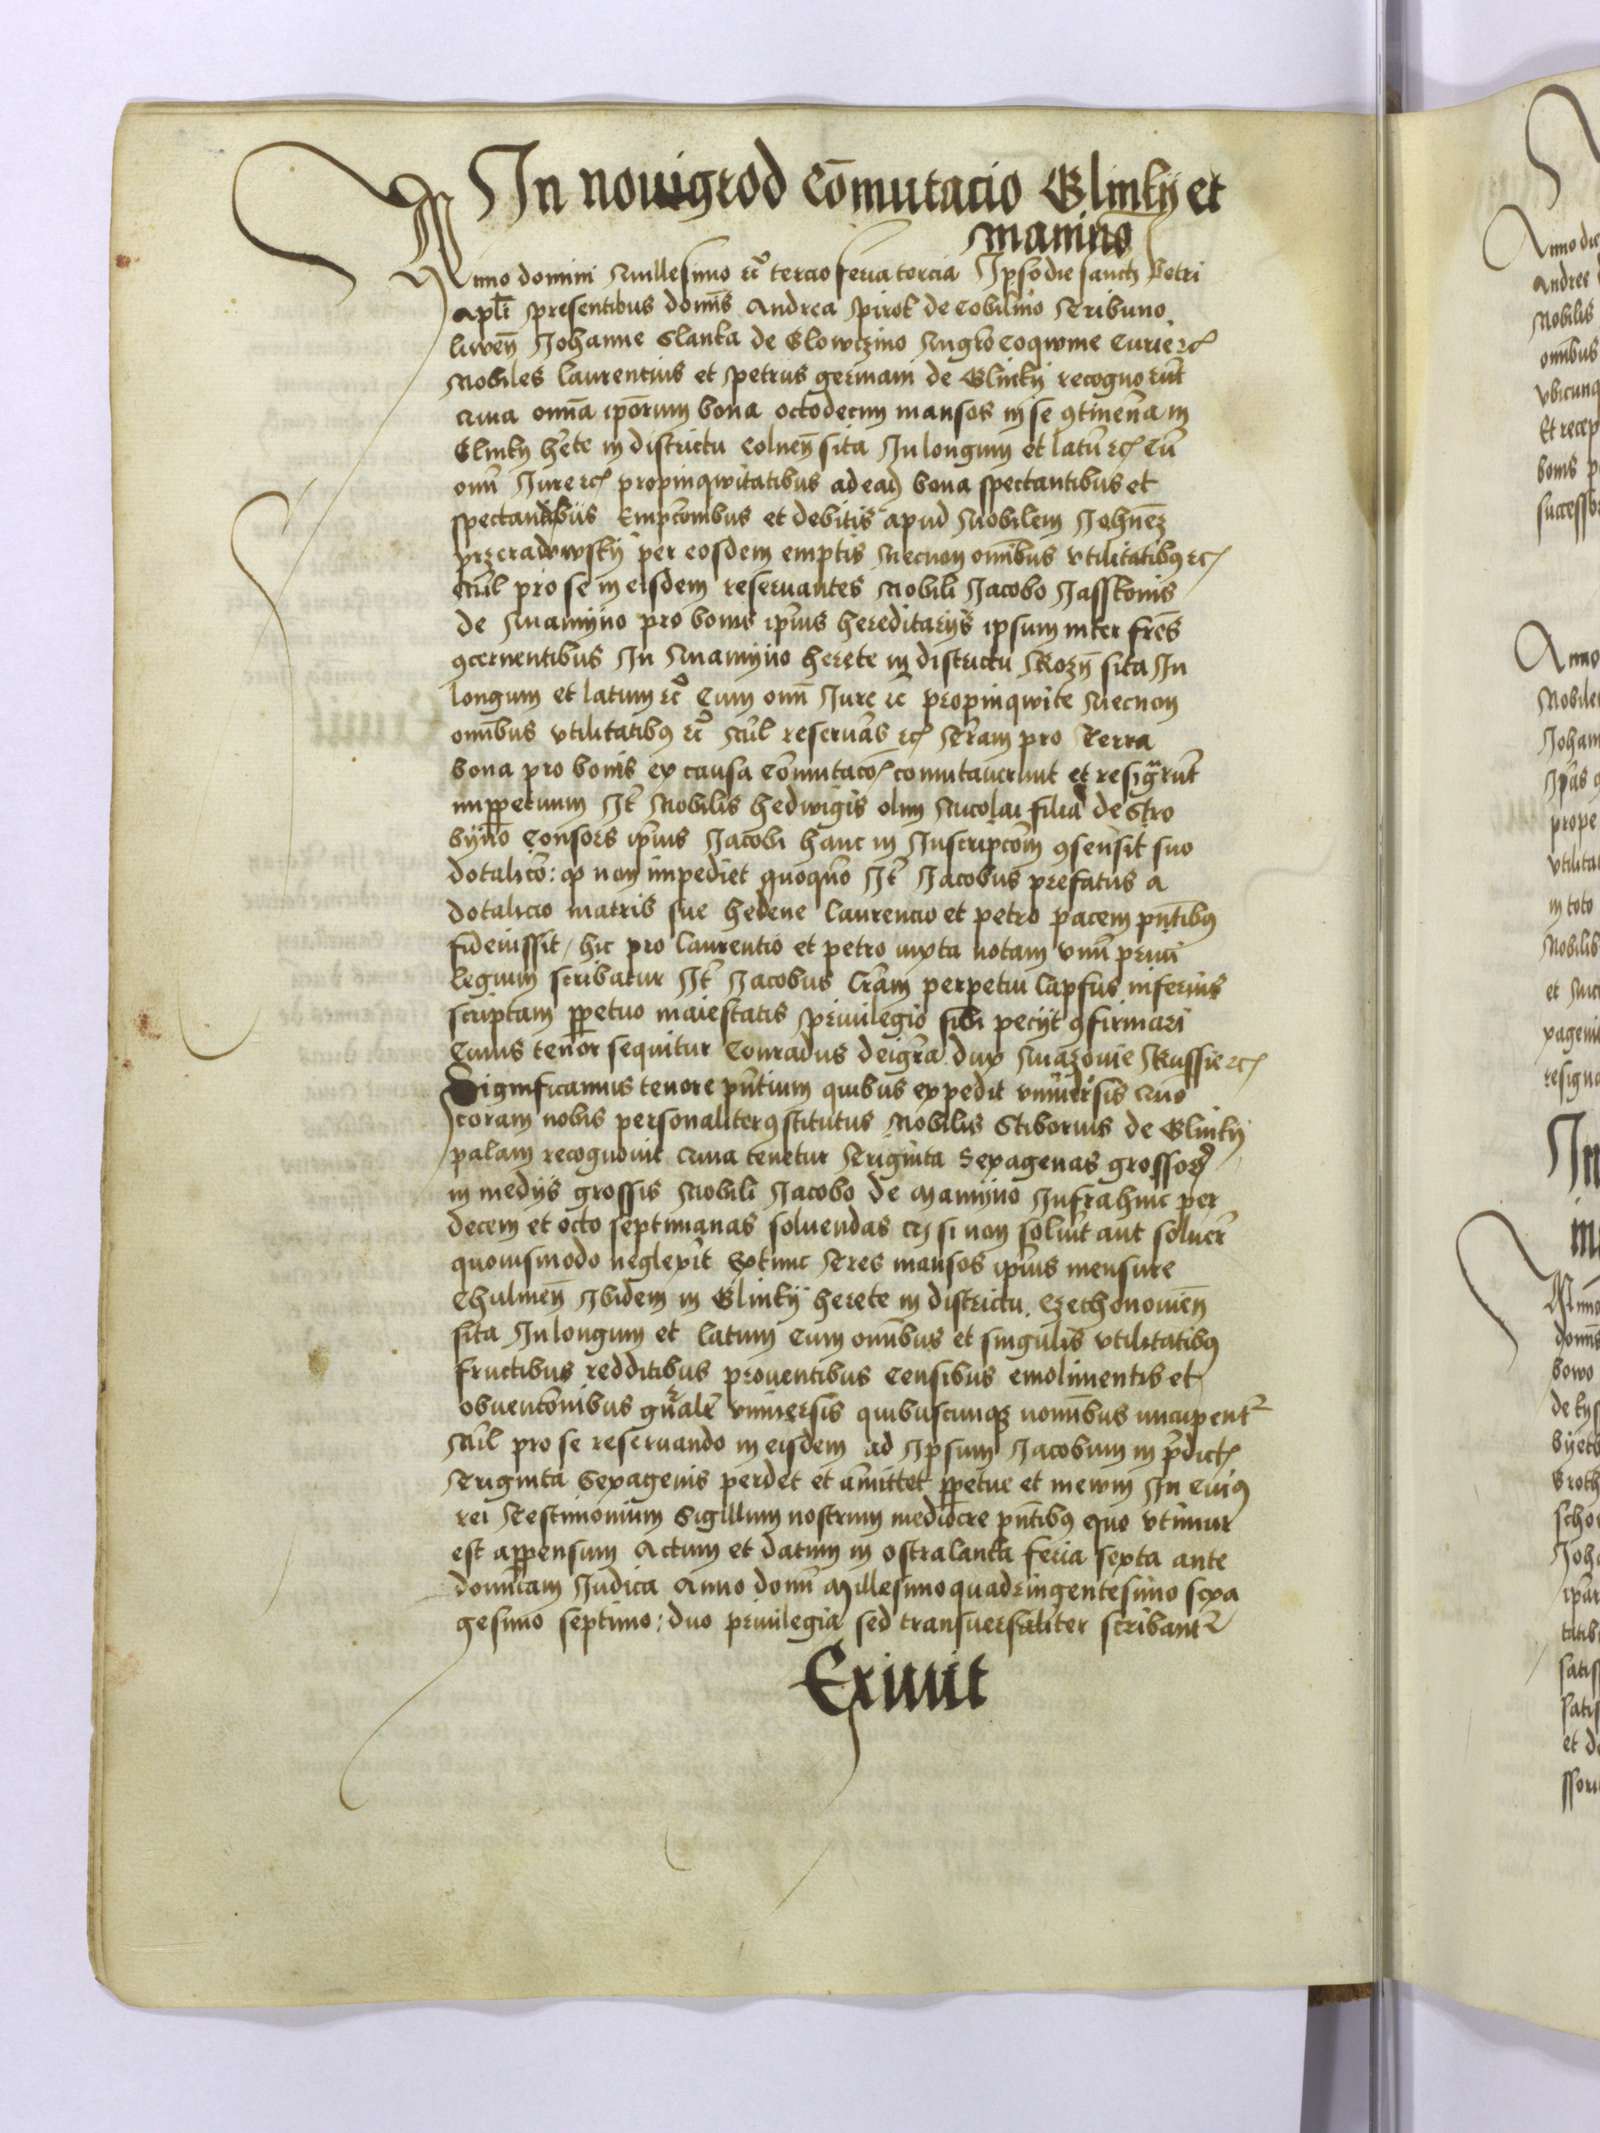 In novigrod Cōmutacio Glinky et
manino
Anno domini Millesimo rcͦ tercio feria tercia Ipso die sancti Petri
apłi presentibus domīs Andrea pirok de Cobilino Tribuno
liwen̄ Johanne Slanka de Glowczino Mgrō Coqwine Curie rc̄
Nobiles laurentius et petrus germani de Glinky recognorūt
quia om̄a ip̄orum bona octodecim mansos in se ꝯtinen̄a in
Glinky h̄ete in districtu Colnen̄ sita In longum et latū rc̄ Cū
om̄i Iure rc̄ propinqwitatibus ad ead̄ bona spectantibus et
spectandibus Empc̄onibus et debitis apud Nobilem Joh̄nez
przeradowsky per eosdem emptis Necnon om̄ibus vtilitatibꝯ rc̄
Nīl pro se in eisdem reseruantes Nobili Jacobo Jasskonis
de Mamyno pro bonis ip̄ius hereditarijs ipsum inter fr̄es
ꝯcernentibus In Mamyno herete in districtu Rozn̄ sita In
longum et latum rcͦ Cum om̄i Iure rc̄ propinqwite Necnon
om̄ibus vtilitatibꝯ rcͦ Nīl reseruās rc̄ Terram pro Terra
bona pro bonis ex causa Com̄utaco̅ comutauerunt et resig̅rūt
imp̱petuum It̄ Nobilis hedwigis olim Nicolai filia de Stro
byno Consors ip̄ius Jacobi hanc in Inscripc̄om ꝯsensit suo
dotalic̄o: ꝙ non impediet quoquō It̄ Jacobus prefatus a
dotalicio matris sue helene laurencio et petro pacem pn̄tibꝯ
fideiussit / hic pro laurentio et petro iuxta notam vnū priui
legium scribatur It̄ Jacobus lr̄am perpetui lapsus inferius
scriptam p̱petuo maiestatis priuilegio sibi pecijt ꝯfirmari
Cuius tenor sequitur Conradus dei gr̄a dux Mazouie Russie rc̄
Significamus tenore pn̄tium quibus expedit vniuersis quō
coram nobis personaliter ꝯstitutus Nobilis Stiborius de Glinky
palam recognouit quia tenetur Triginta Sexagenas grossoꝝ
in medijs grossis Nobili Jacobo de Mamyno Infra hinc per
decem et octo septimanas soluendas si non soluīt aut soluer̄
quouismodo neglexīt Extunc Tres mansos ip̄ius mensure
Chulmen̄ Ibidem in Glinky herete in districtu Czechonouien̄
sita In longum et latum cum om̄ibus et singulis vtilitatibꝯ
fructibus redditibus prouentibus Censibus emolimentis et
obuenc̄onibus gn̄alr̄ vniuersis quibuscunqꝫ nom̄ibus nucupent²
Nīl pro se reseruando in eisdem ad Ipsum Jacobum in p̄dict̄
Triginta Sexagenis perdet et amittet p̱petue et in ewm In Cuiꝯ
rei Testimonium Sigillum nostrum mediocre pn̄tibꝯ quo vtimur
est appensum Actum et datum in ostralanka feria sexta ante
domīcam Iudica Anno domī Millesimo quadringentesimo sexa
gesimo septimo: duo priuilegia sed transuersaliter scribant²
Exiuit